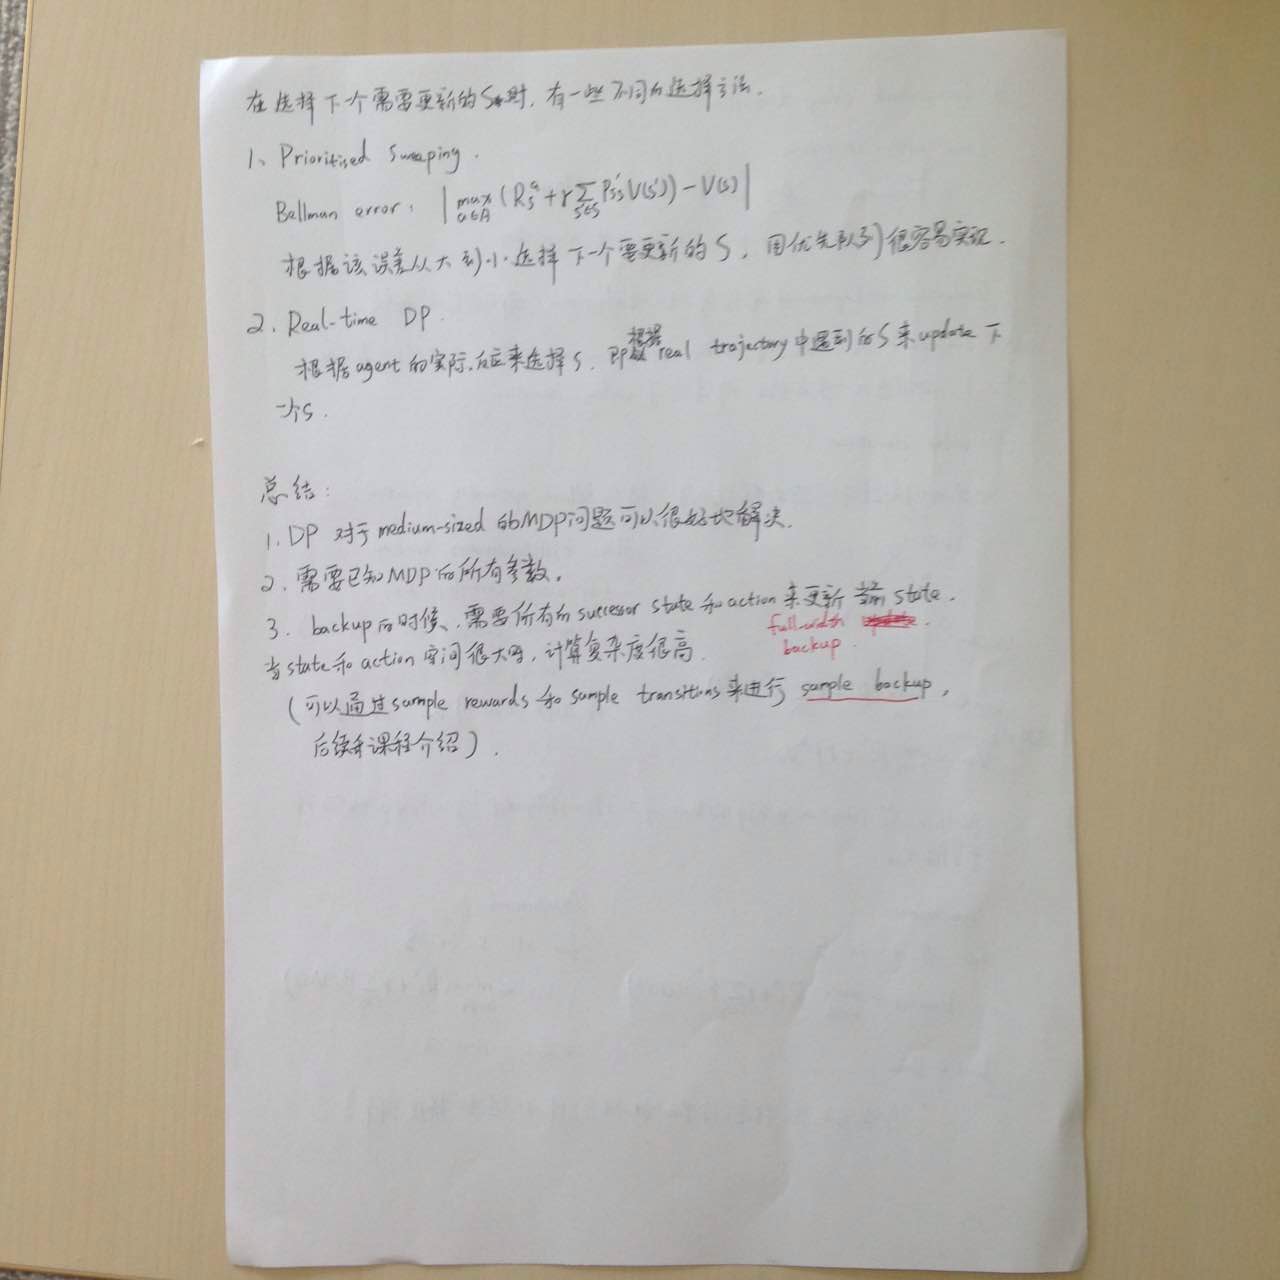 在选择下个需要更新的S时，有一些不同的选择方法.
1、Prioritised Sweeping.
Bellman error: | max a∈A (R_s^a + γ Σ s'∈S P_ss' V(s')) - V(s) |
根据该误差从大到小选择下一个需更新的S，用优先队列很容易实现.
2. Real-time DP.
根据agent的实际反应来选择S. 即根据real trajectory中遇到的S来update下
一个S.
总结：
1. DP 对于medium-sized 的MDP问题可以很好地解决.
2. 需要已知MDP的所有参数.
3. backup的时候，需要所有的successor state和action来更新当前state.
full-width
backup.
当state和action空间很大时，计算复杂度很高.
(可以通过sample rewards 和 sample transitions来进行 sample backup,
后续课程介绍).